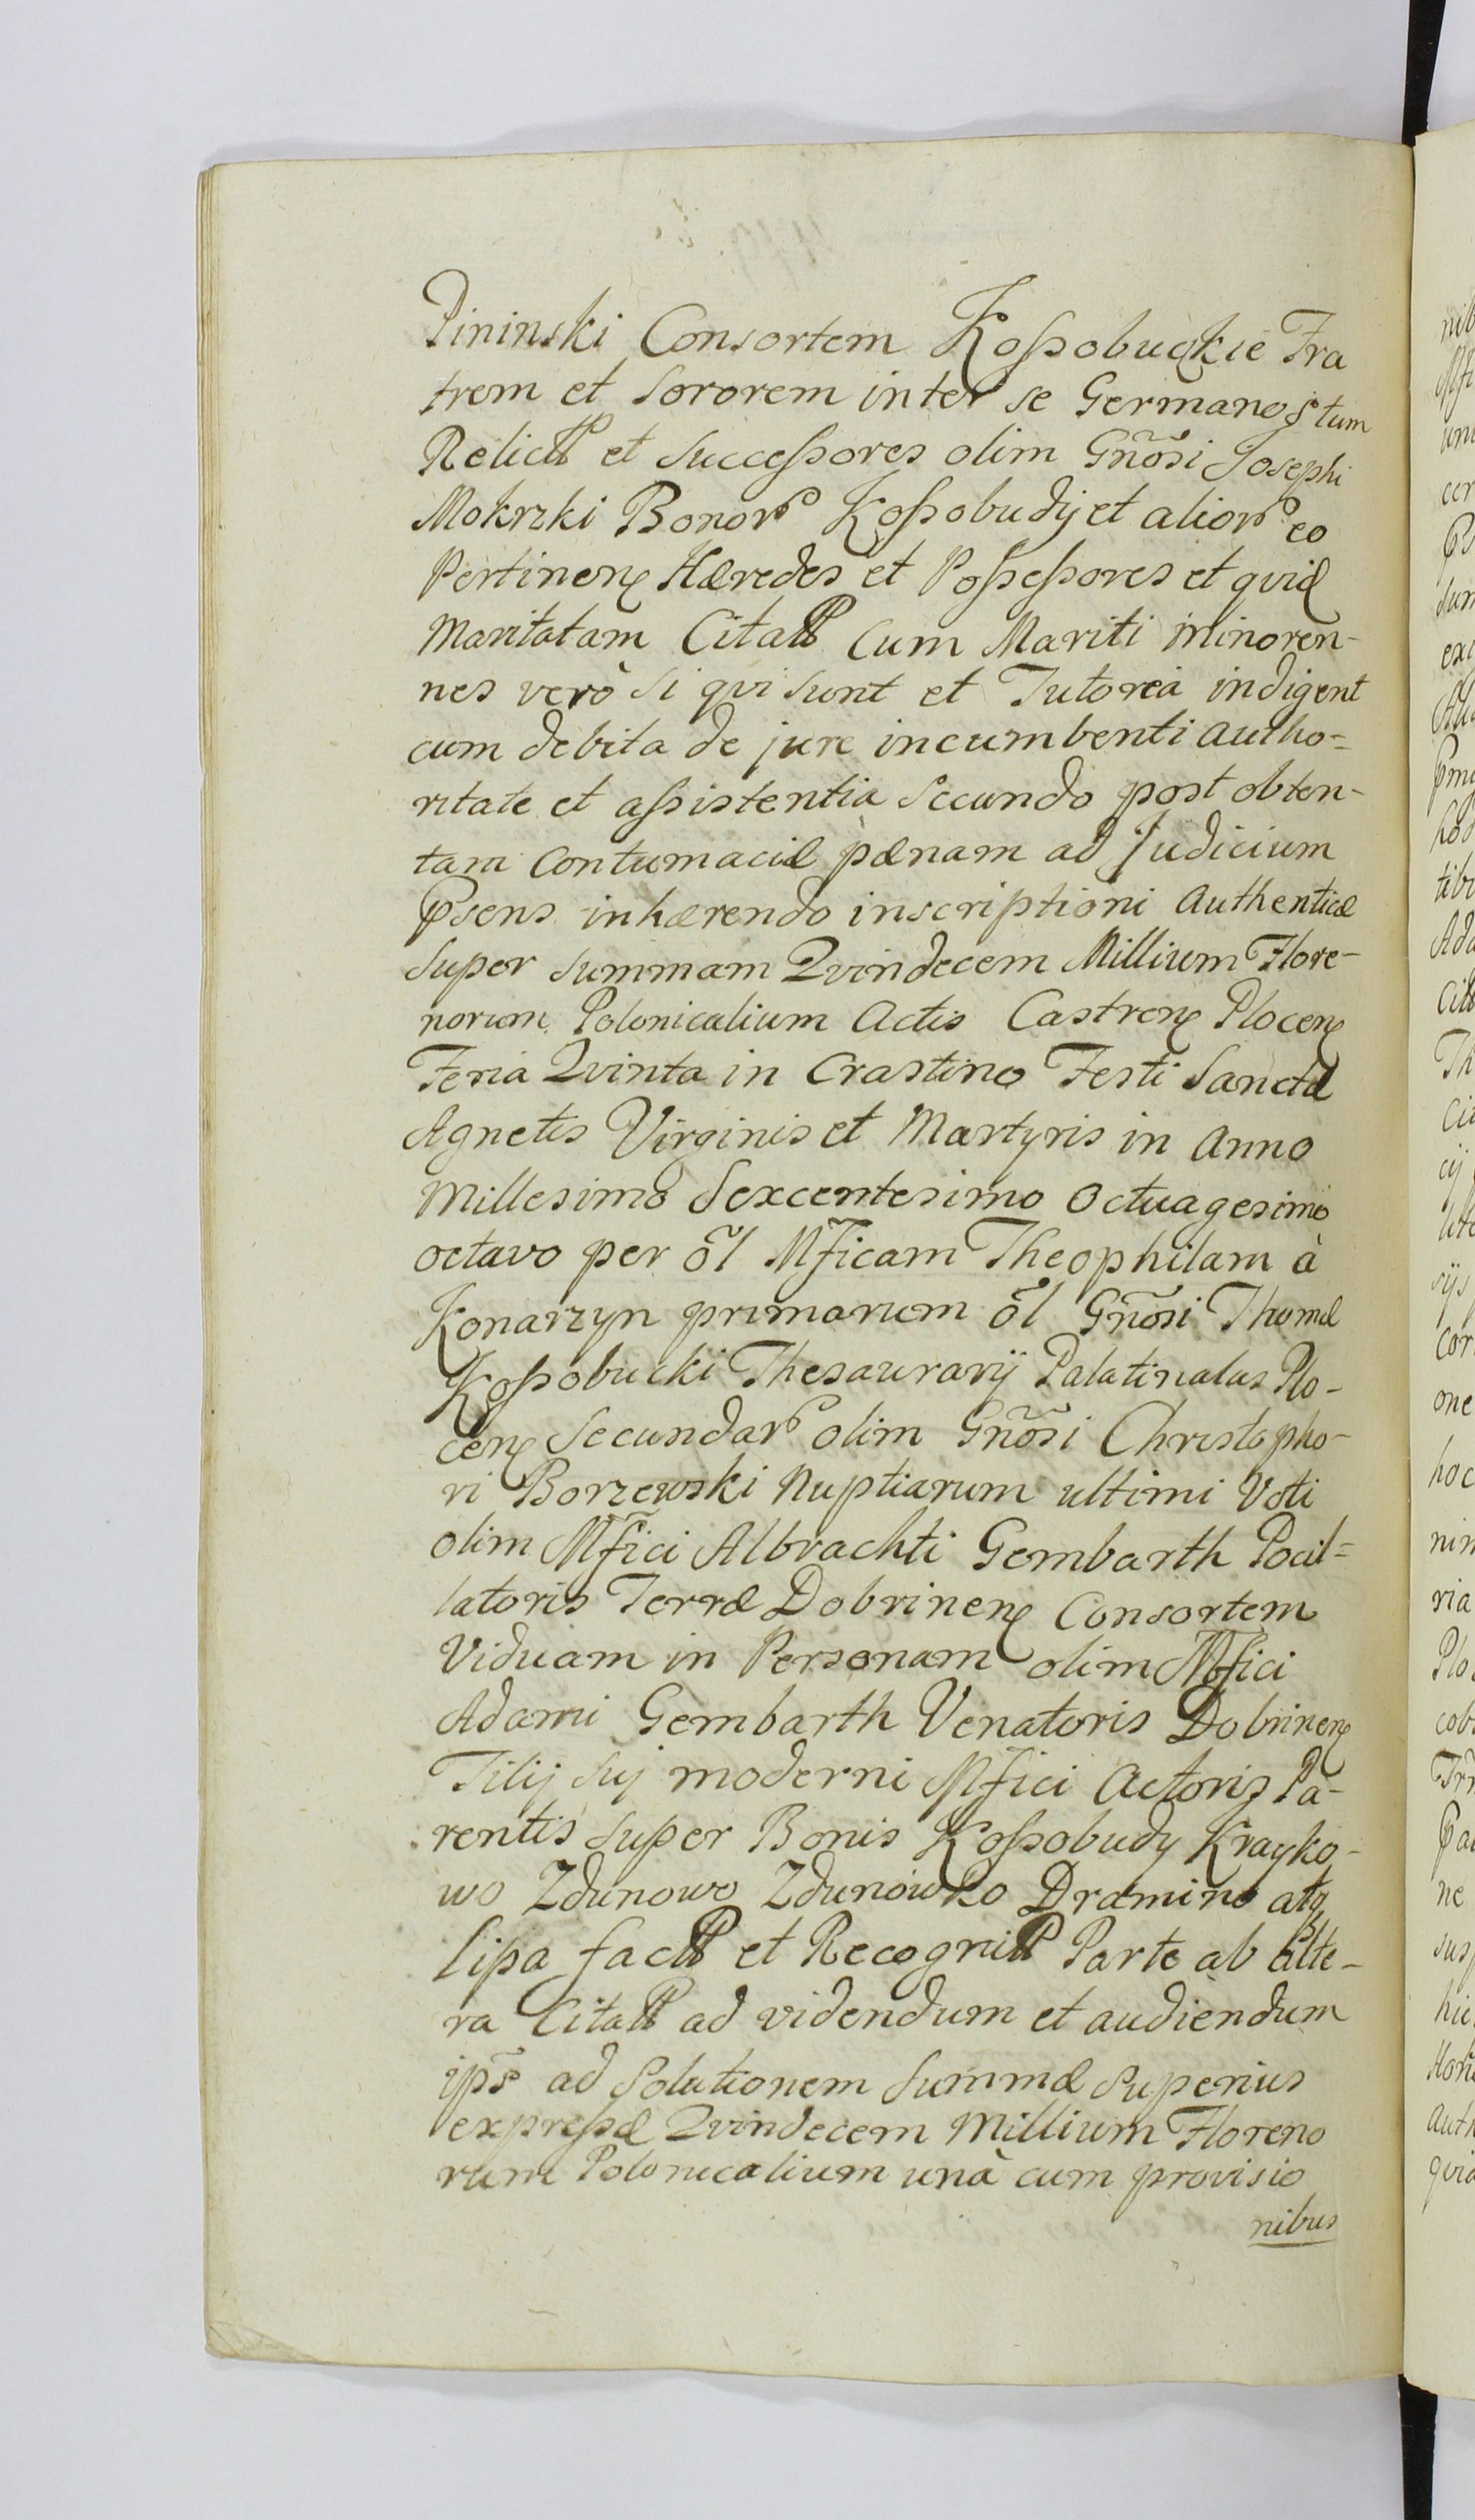 Pininski Consortem Koſsobuckie Fra
trem et Sororem inter se Germanos tum
Relictt et Succeſsores olim Gn̄osi Josephi
Mokrzki Bonor Koſsobudÿ et alior eo
Pertinen Hæredes et Poſseſsores et quid
Maritatam Citatt Cum Mariti minoren-
nes verò si qui sunt et Tutorea indigent
cum debita de jure incumbenti autho=
ritate et aſsistentia Secundo post obten-
tam Contumaciæ pænam ad Judicium
Psens inhærendo inscriptioni Authenticæ
Super Summam Qvindecem Millium Flore-
norum Polonicalium Actis Castren Plocen
Feria Qvinta in Crastino Festi Sanctæ
Agnetis Virginis et Martyris in Anno
Millesimo Sexcentesimo Octuagesimo
octavo per ōl Mficam Theophilam à
Konarzyn primarum ōl Gn̄osi Thomæ
Koſsobucki Thesaurarij Palatinatus Plo-
cen Secundar olim Gn̄osi Christopho-
ri Borzewski Nuptiarum ultimi Voti
olim Mfici Albrachti Gembarth Pocil=
latoris Terræ Dobrinen Consortem
Viduam in Personam olim Mfici
Adami Gembarth Venatoris Dobrinen
Filij Sui moderni Mfici Actoris Pa-
rentis Super Bonis Koſsobudy Krayko-
wo Zdunowo Zdunowko Dramino atq
Lipa factt et Recognitt Parte ab alte-
ra Citatt ad videndum et audiendum
ips̄ ad Solutionem Summæ Superius
expreſsæ Qvindecem Millium Floreno
rum Polonicalium unà cum provisio
nibus